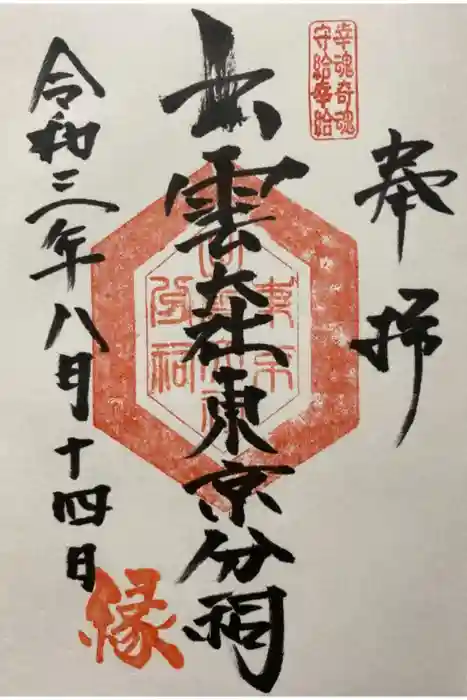 奉拝
幸魂奇魂
守給幸給
出雲大社東京分祠
東京
出雲大社
分祠
令和三年八月十四日
縁